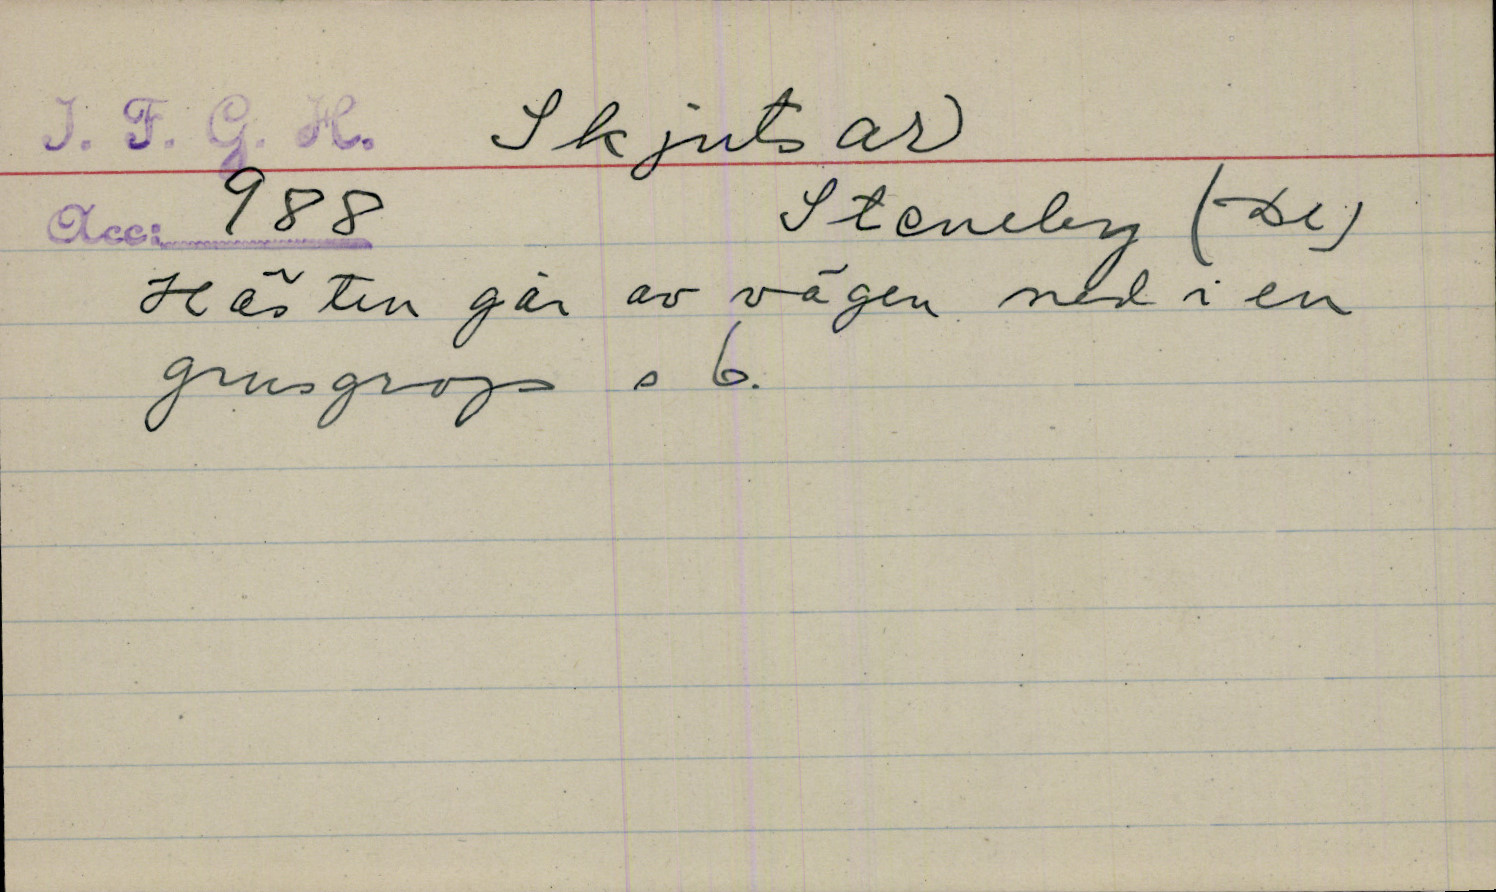 I. F. G. H. Skjutsar
Acc: 988 Steneby (Dl)
Hästen går av vägen ned i en
grusgrop s 6.